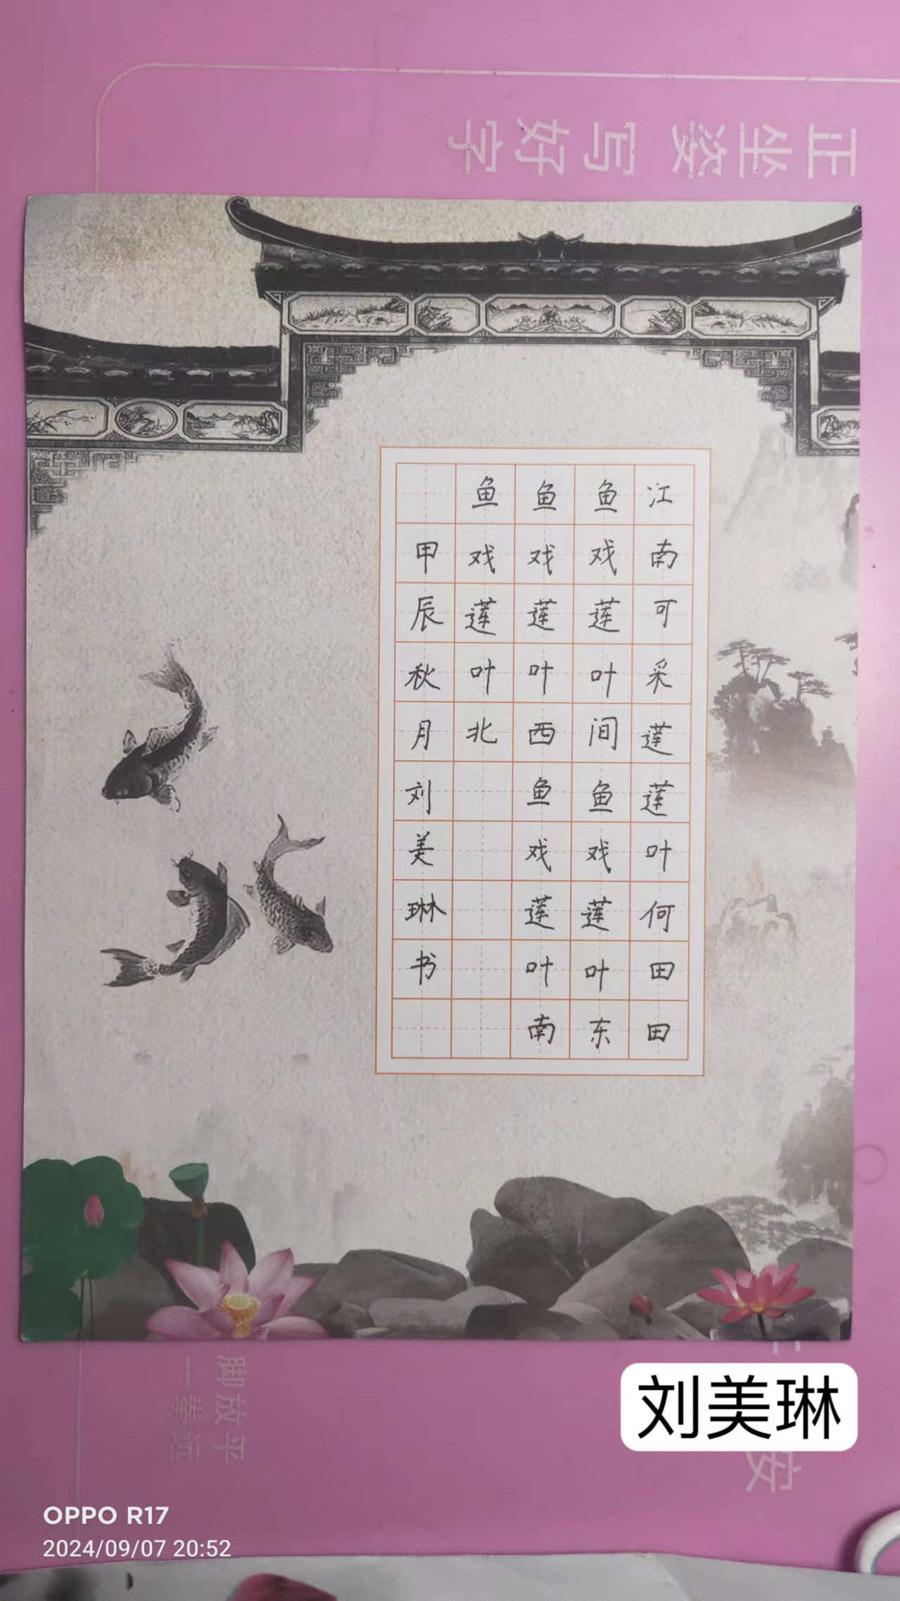 正坐姿 写好字
江南可采莲莲叶何田田
鱼戏莲叶间鱼戏莲叶东
鱼戏莲叶西鱼戏莲叶南
鱼戏莲叶北
甲辰秋月刘美琳书
脚放平
一拳远
安
刘美琳
OPPO R17
2024/09/07 20:52